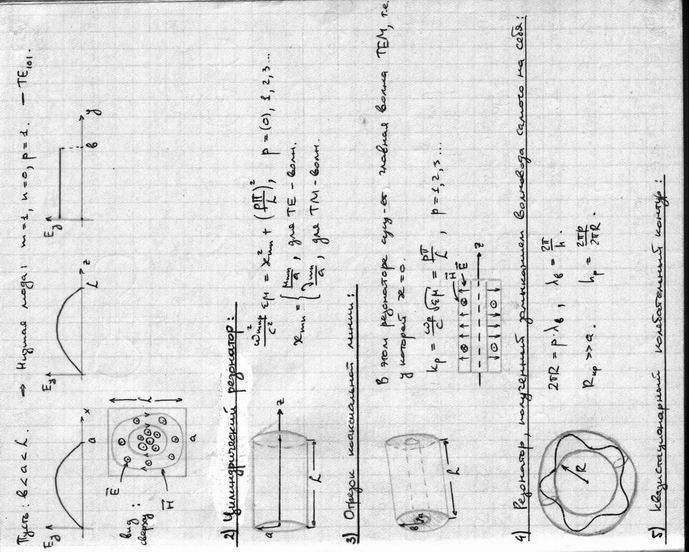 Пусть: b < a < L. → Низшая мода: m=1, n=0, p=1. – TE₁₀₁.
E_y
a
x
E_y
L
z
E_y
b
y
вид сверху:
E̅
H̅
L
a
2) Цилиндрический резонатор:
a
z
L
ω²_mnp/c² εμ = æ²_mn + (pπ/L)², p = (0), 1, 2, 3...
æ_mn = { μ_mn/a, для TE-волн.
ν_mn/a, для TM-волн.
3) Отрезок коаксиальной линии:
L
В этом резонаторе сущ-ет главная волна TEM, т.е.
у которой æ=0.
k_p = ω_p/c √εμ = pπ/L, p=1,2,3....
H̅
E̅
z
4) Резонатор, полученный замыканием волновода самого на себя:
R
2πR = pλ_в, λ_в = 2π/h.
R_кр >> a. h_p = 2πp/2πR.
5) Квазистационарный колебательный контур: